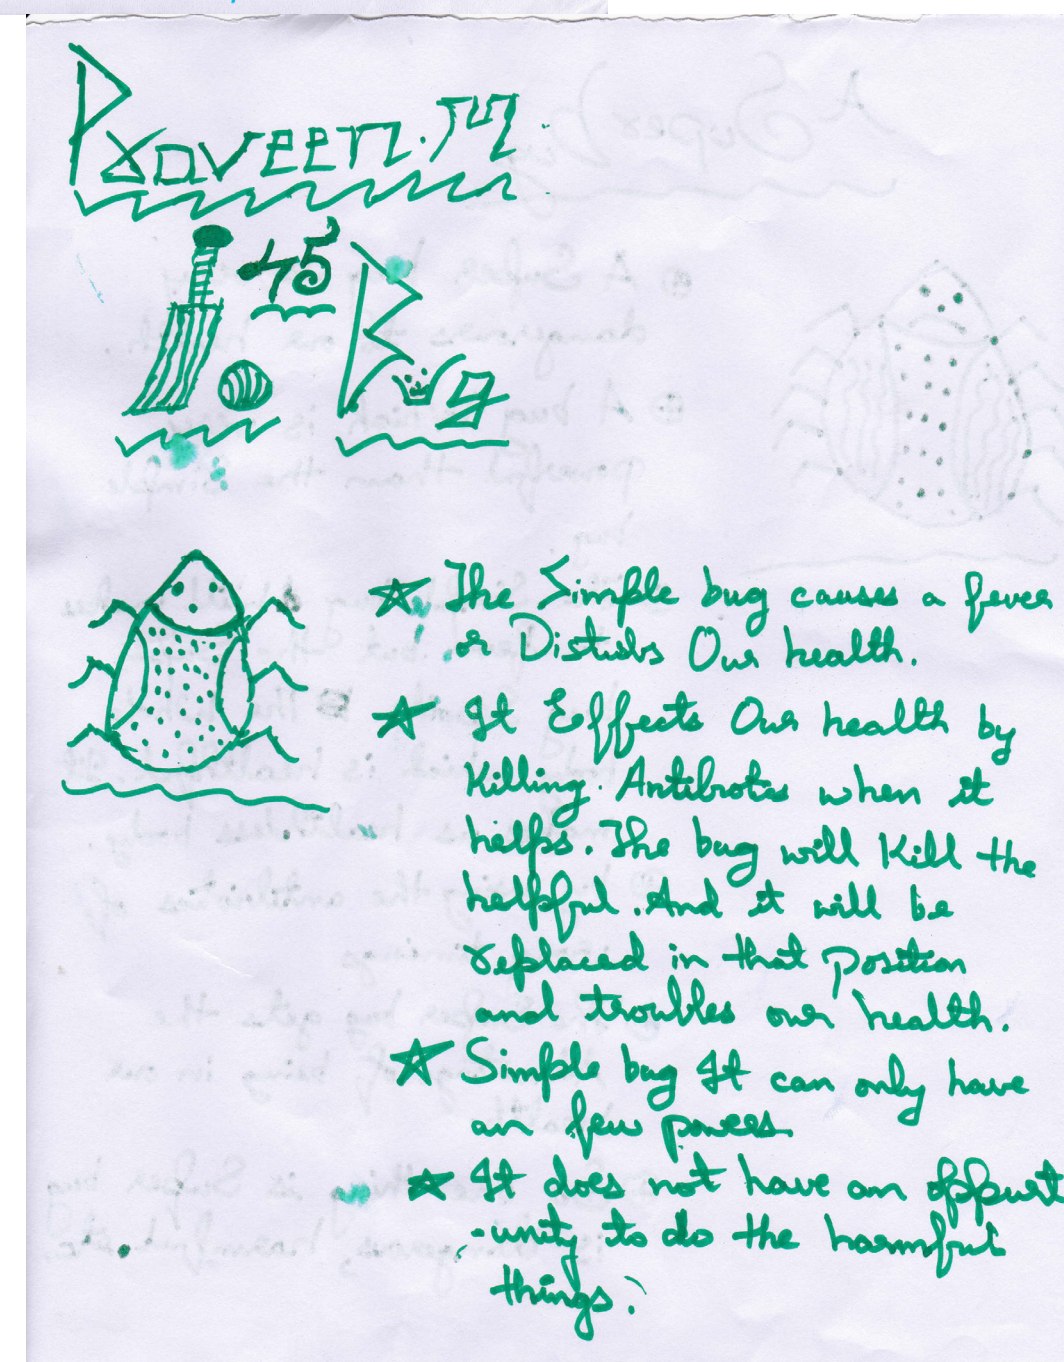 Praveen.M
45 Bug
The Simple bug causes a fever
or Disturbs Our health.
It Eeffects Our health by
Killing. Antibiotes when it
helps. The bug will Kill the
helpful. And it will be
replaced in that position
and troubles our health.
Simple bug It can only have
an few powers.
It does not have an oppurt
-unity to do the harmful
things.